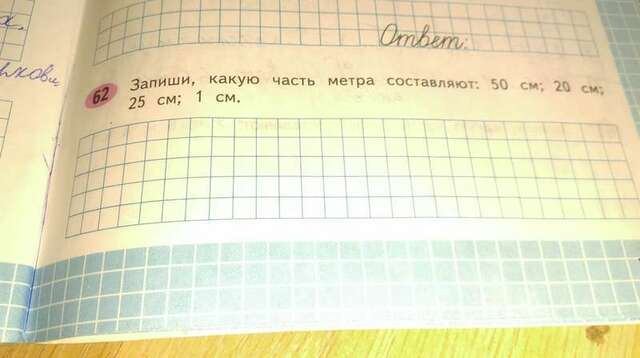 х.
Ответ:
62 Запиши, какую часть метра составляют: 50 см; 20 см;
25 см; 1 см.